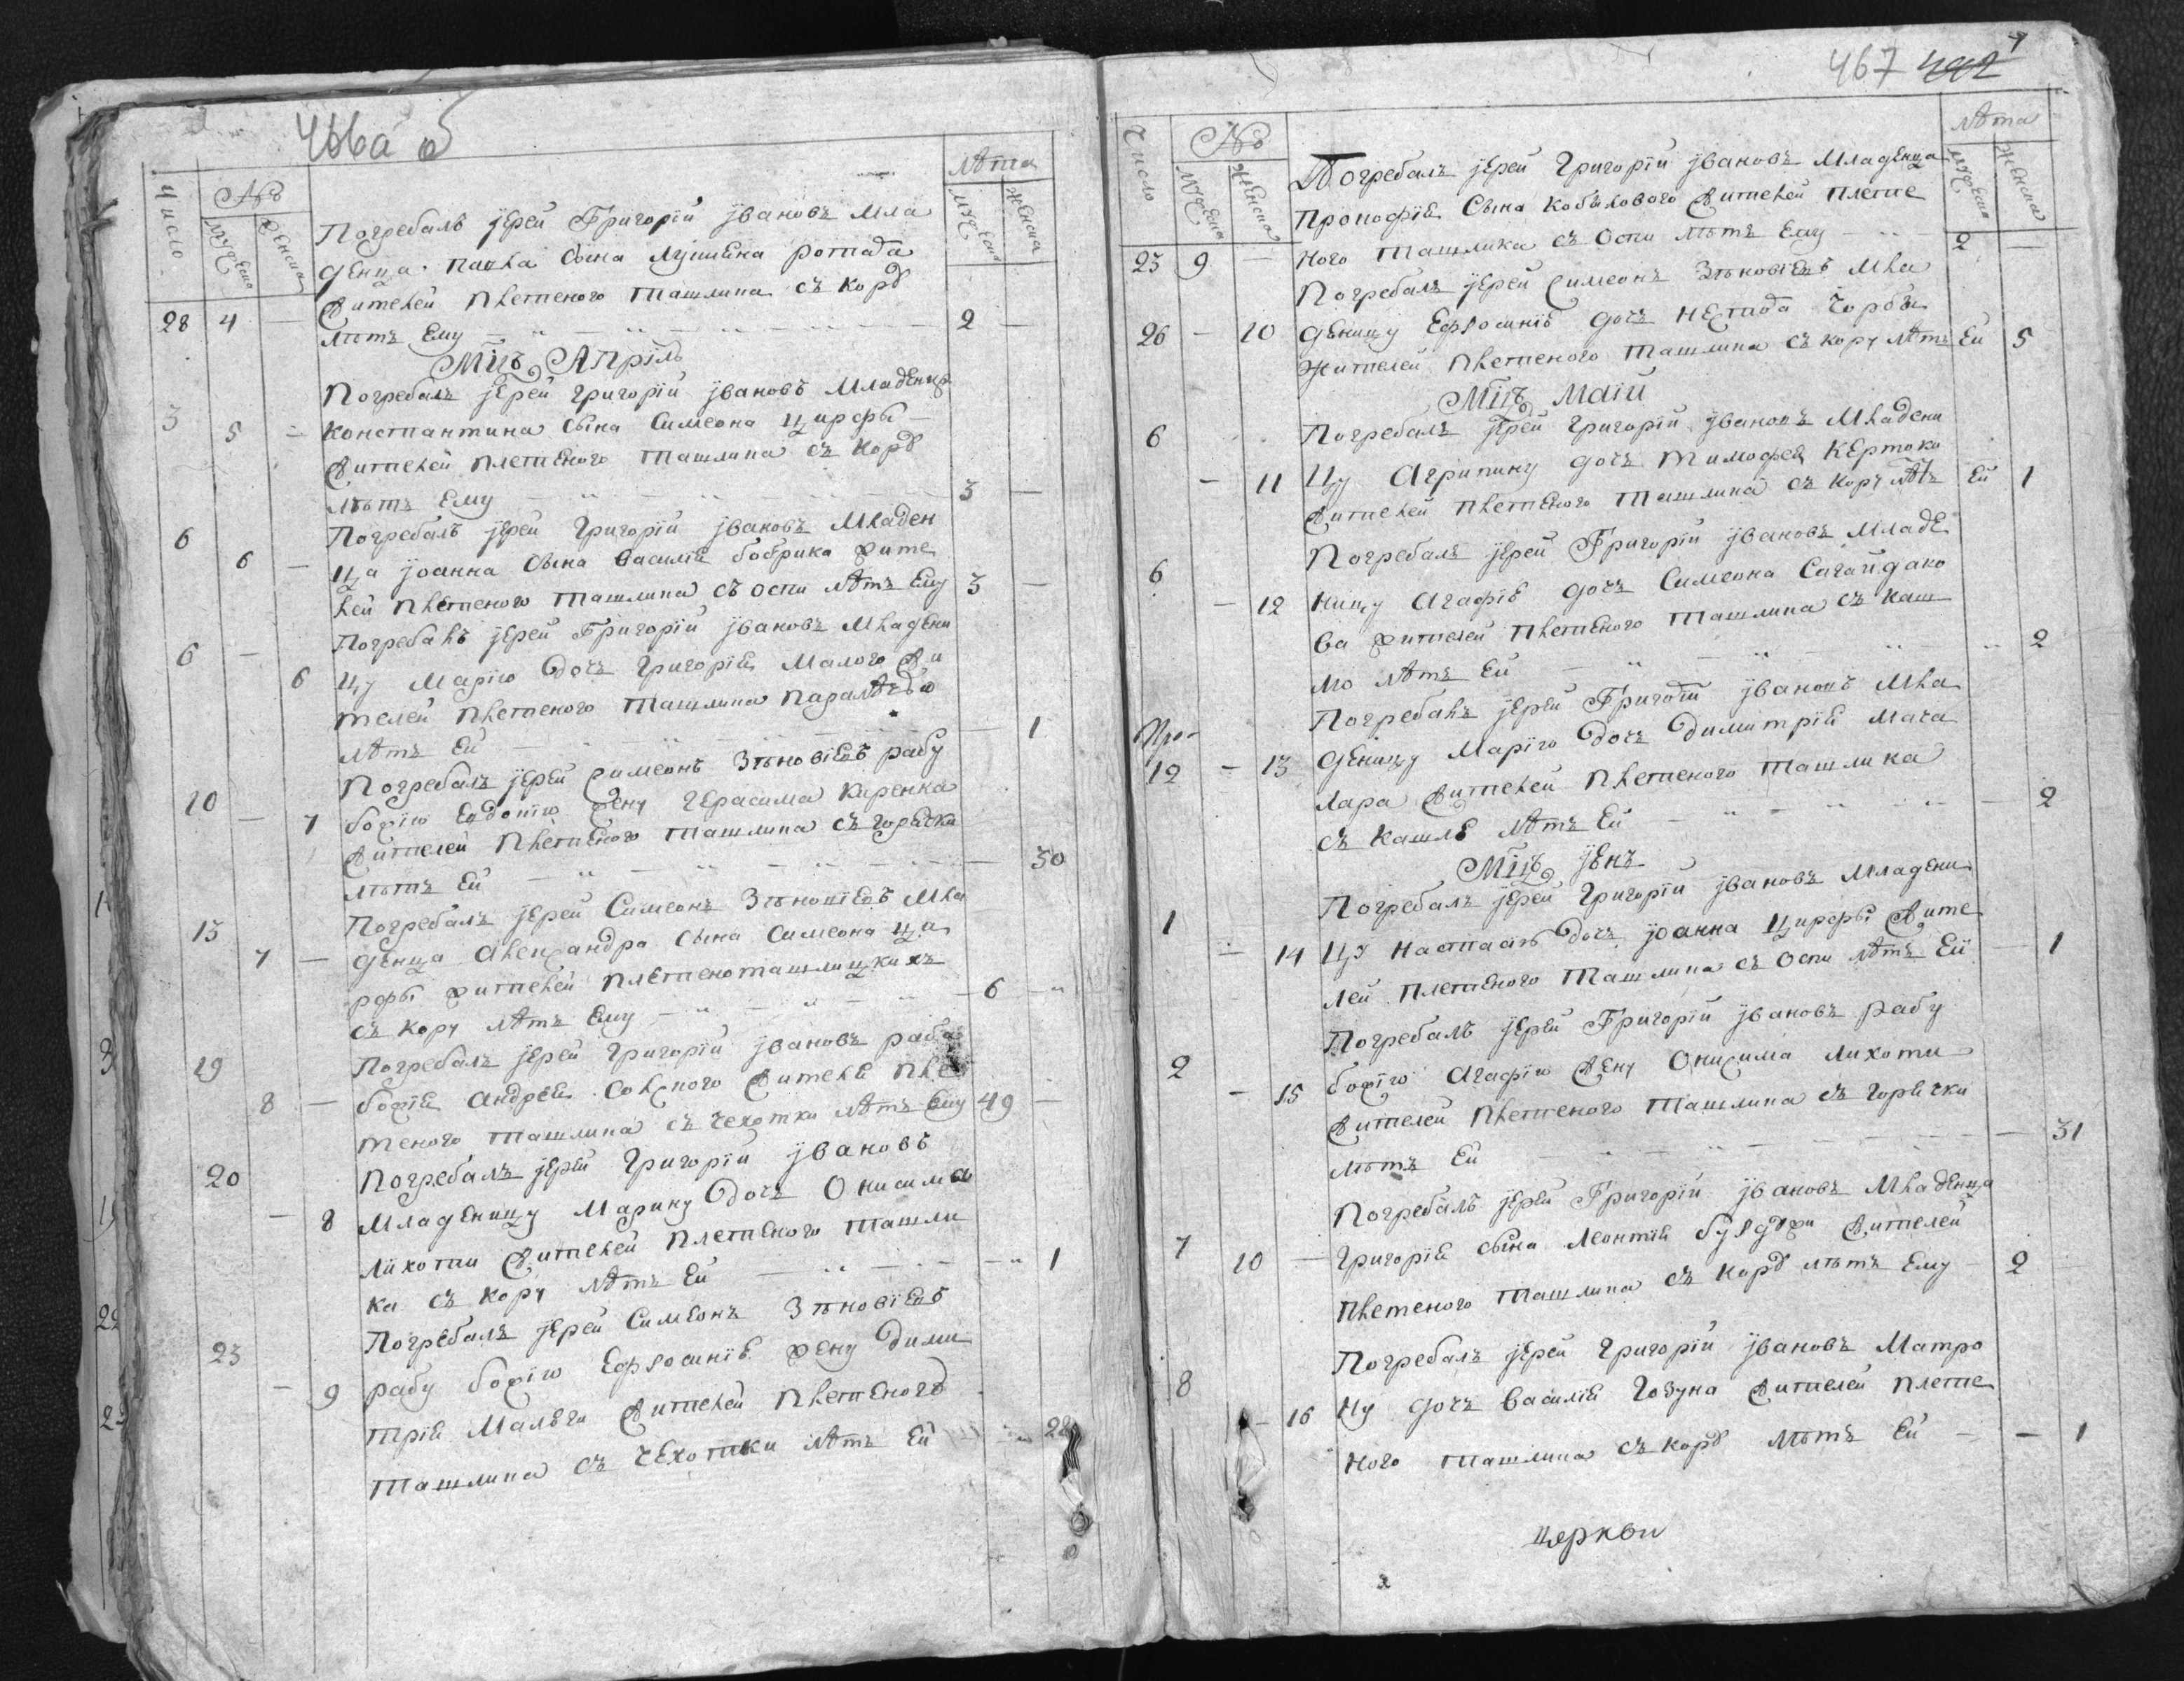 466а об
число № мужеска женска лѣта мужеска женска
Погребалъ ӱерей Григорїй ӱвановъ мла
денца Павла сына
жителей Плетеного Ташлика съ кору
28 4 — лѣтъ ему — 2 —
Мцъ Апрїль
Погребалъ ӱерей Григорїй ӱвановъ младенца
3 5 — Константина сына Симеона Цирфы
жителей Плетеного Ташлика съ кору
лѣтъ ему — 3 —
6 Погребалъ ӱерей Григорїй ӱвановъ младен
6 — ца ӱоанна сына Василїѣ Бобрика жите
лей Плетеного Ташлика съ оспи лѣтъ ему 3 —
Погребалъ ӱерей Григорїй ӱвановъ младени
6 — 6 цу Марїю дочъ Григорїѣ Малого жи
телей Плетеного Ташлика
лѣтъ ей — 1
Погребалъ ӱерей Симеонъ Зѣновїевъ рабу
10 — 7 божїю Евдокїю жену Герасима Каренка
жителей Плетеного Ташлика съ горѣчки
лѣтъ ей — 30
Погребалъ ӱерей Симеонъ Зѣновїевъ мла
13 7 — денца Александра сына Симеона Ци
рфы жителей Плетеноташлицкихъ
съ кору лѣтъ ему — 6 —
19 Погребалъ ӱерей Григорїй ӱвановъ раба
8 — божїѣ Андрѣѣ жителѣ Пле
теного Ташлика съ чехотки лѣтъ ему 49 —
20 Погребалъ ӱерей Григорїй ӱвановъ
— 8 младеницу Марину дочъ Онисима
Лихоти жителей Плетеного Ташли
ка съ кору лѣтъ ей — 1
Погребалъ ӱерей Симеонъ Зѣновїевъ
23 — 9 рабу божїю Ефросинїѣ жену Дими
трїѣ жителей Плетеного
Ташлика съ чехотки лѣтъ ей — 28
467 492
число № мужеска женска лѣта мужеска женска
Погребалъ ӱерей Григорїй ӱвановъ младенца
Прокофїѣ сына жителей Плете
23 9 — ного Ташлика съ оспи лѣтъ ему — 2 —
Погребалъ ӱерей Симеонъ Зѣновїевъ мла
26 — 10 деницу Ефросинїѣ дочъ Чорбы
жителей Плетеного Ташлика съ кору лѣтъ ей 5
Мцъ Маїй
6 Погребалъ ӱерей Григорїй ӱвановъ младени
— 11 цу Агрипину дочъ Тимофеѣ
жителей Плетеного Ташлика съ кору лѣтъ ей 1
6 Погребалъ ӱерей Григорїй ӱвановъ младе
— 12 ницу Агафїѣ дочъ Симеона Сагайдако
ва жителей Плетеного Ташлика съ каш
лю лѣтъ ей — 2
Погребалъ ӱерей Григорїй ӱвановъ мла
12 — 13 деницу Марїю дочъ Димитрїѣ Мага
лара жителей Плетеного Ташлика
съ кашлѣ лѣтъ ей — 2
Мцъ ӱюнъ
1 Погребалъ ӱерей Григорїй ӱвановъ младени
— 14 цу дочъ ӱоанна Цирфы жите
лей Плетеного Ташлика съ оспи лѣтъ ей — 1
Погребалъ ӱерей Григорїй ӱвановъ рабу
2 — 15 божїю Агафїю жену Онисима Лихоти
жителей Плетеного Ташлика съ горѣчки
лѣтъ ей — 31
Погребалъ ӱерей Григорїй ӱвановъ младенца
7 10 — Григорїѣ сына Леонтїѣ жителей
Плетеного Ташлика съ кору лѣтъ ему 2
Погребалъ ӱерей Григорїй ӱвановъ Матро
8 — 16 ну дочъ Василїѣ жителей Плете
ного Ташлика съ кору лѣтъ ей — 1
церкви